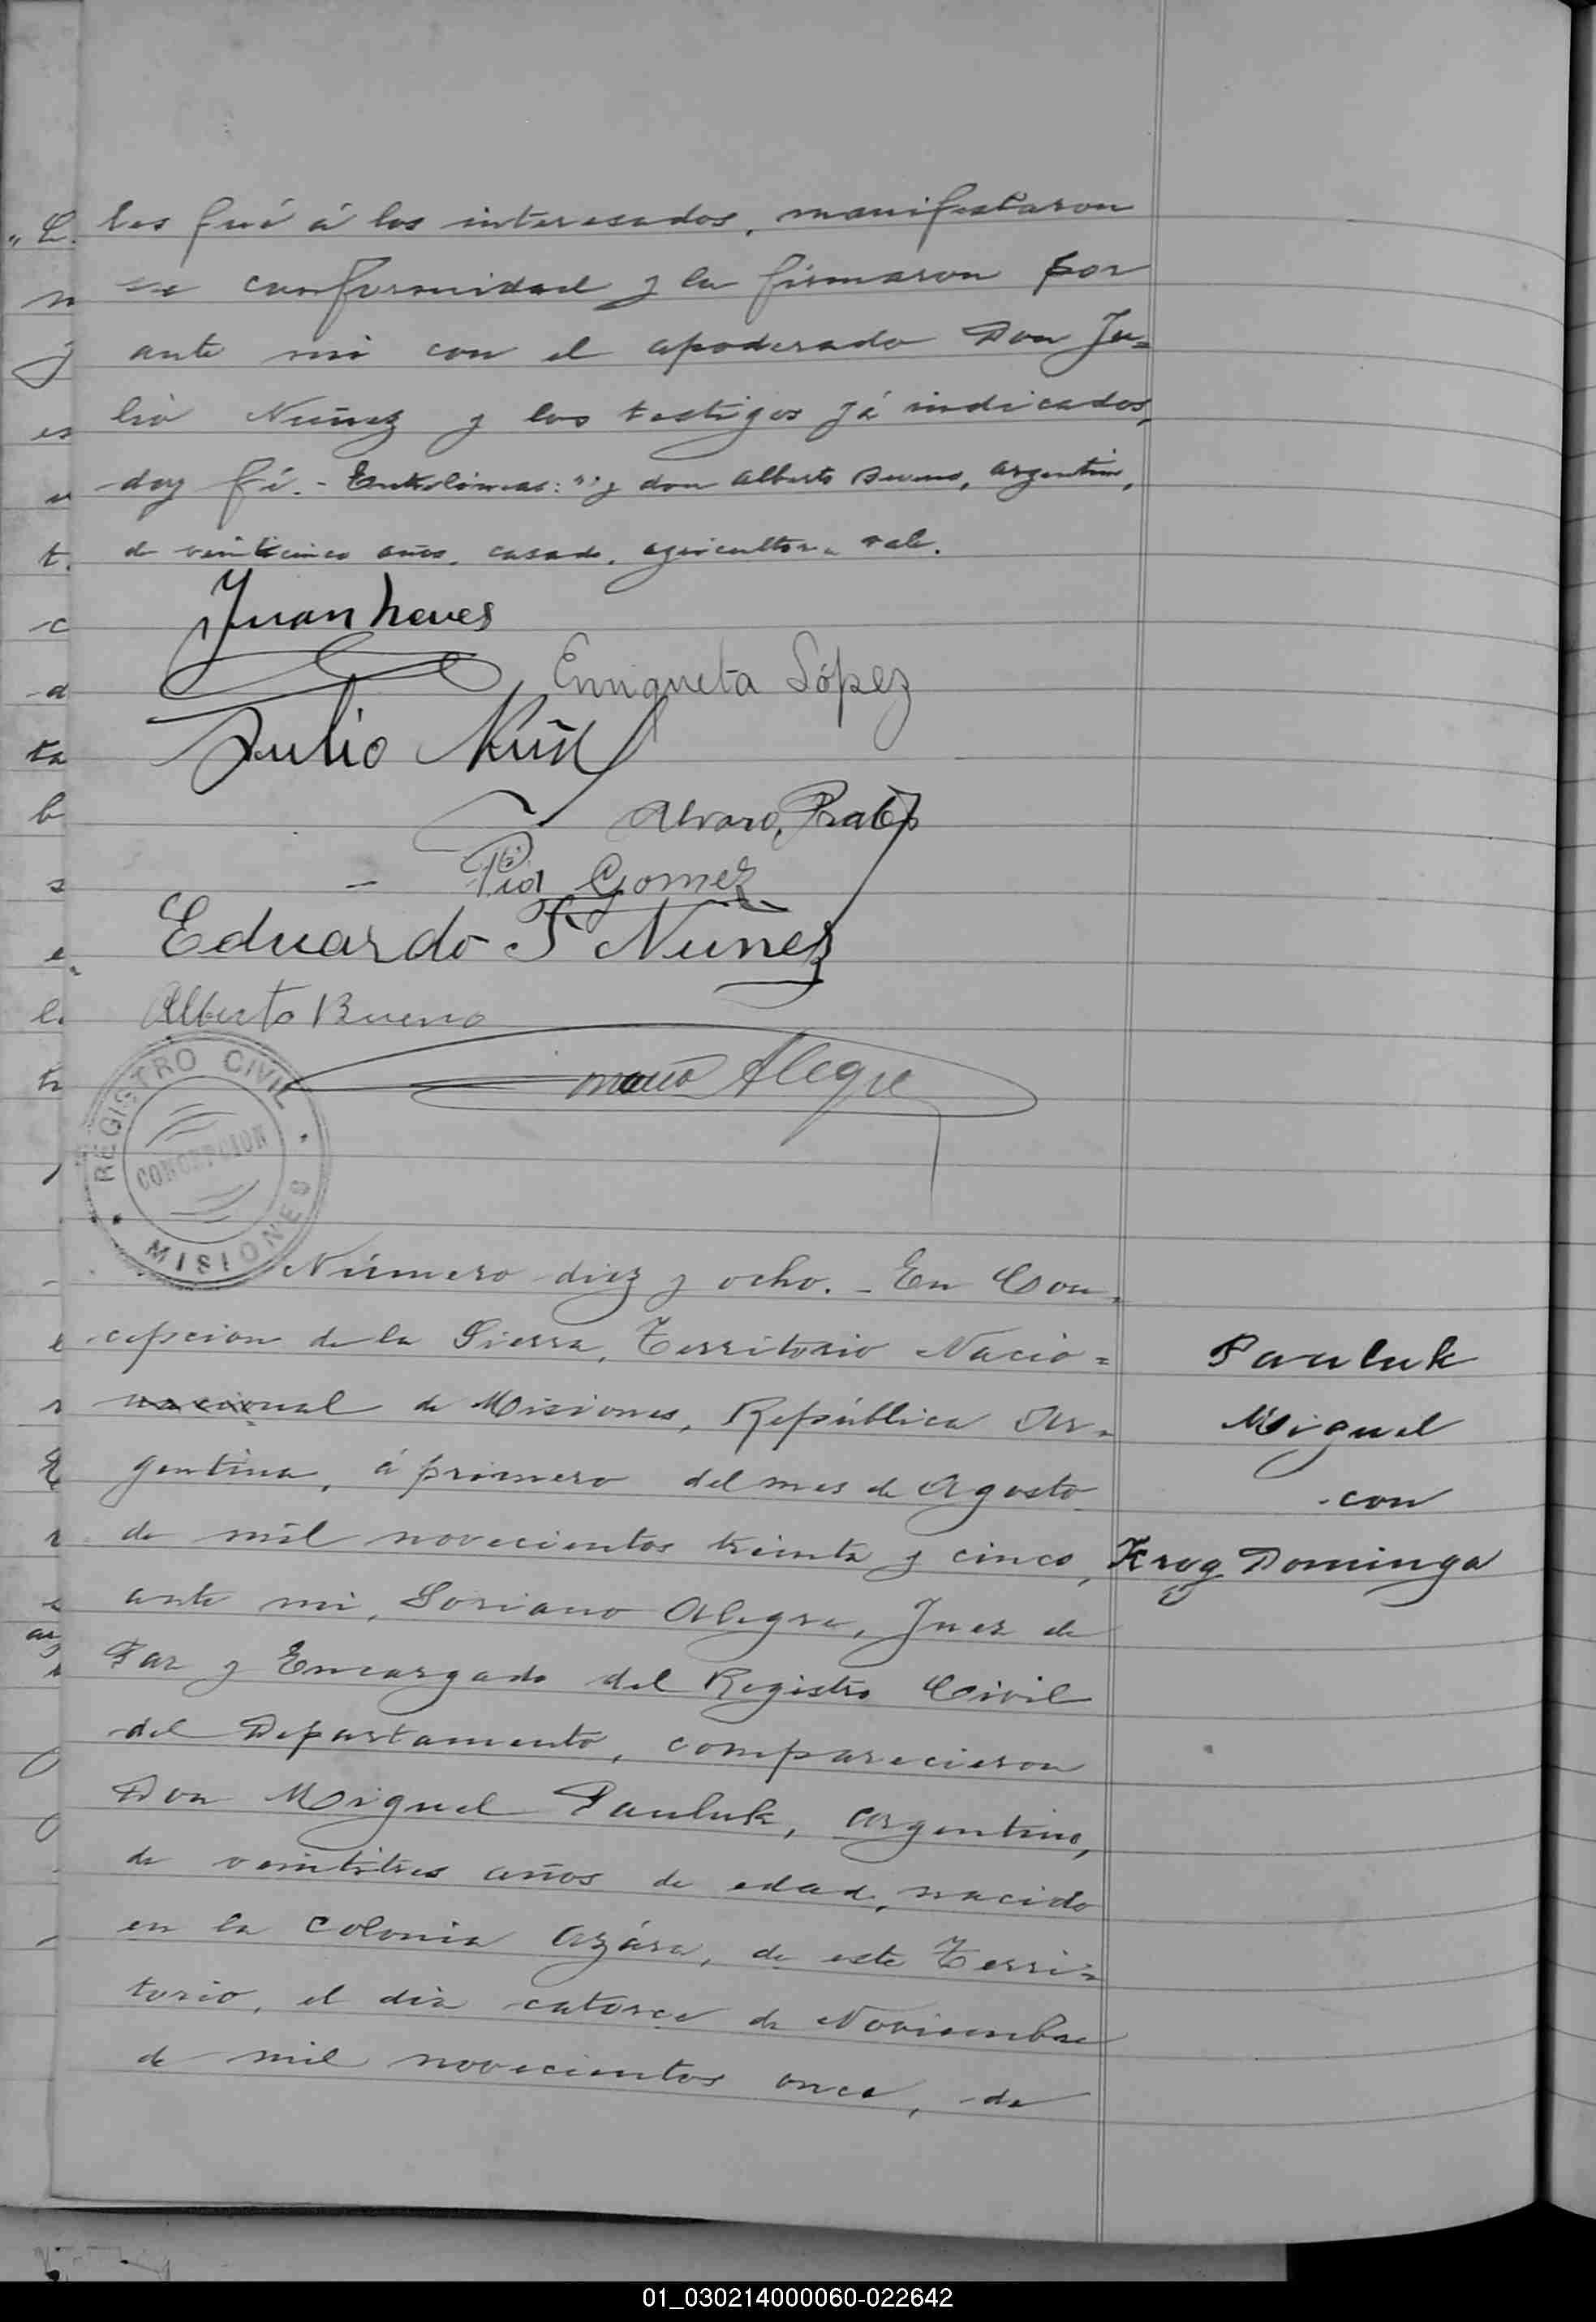 les fué á los interesados, manifestaron
su conformidad y la firmaron por
ante mi con el apoderado Don Ju=
lio Nuñez y los testigos yá indicados,
doy fé.- Entrelíneas: "y don Alberto Bueno, argentino,
de veinticinco años, casado, agricultor" vale.
Juan Neves
Enriqueta López
Julio Nuñez
Alvaro Prates
Pio Gomez
Eduardo F Nuñez
Alberto Bueno
Soriano Alegre
REGISTRO CIVIL
CONCEPCION
MISIONES
Número diez y ocho.- En Con=
cepcion de la Sierra, Territorio Nacio=
nacional de Misiones, República Ar=
gentina, á primero del mes de Agosto
de mil novecientos treinta y cinco,
ante mi, Soriano Alegre, Juez de
Paz y Encargado del Registro Civil
del Departamento, comparecieron
Don Miguel Pauluk, argentino,
de veintitres años de edad, nacido
en la Colonia Azára, de este Terri=
torio, el dia catorce de Noviembre
de mil novecientos once, de
Pauluk
Miguel
con
Krog Dominga
01_030214000060-022642